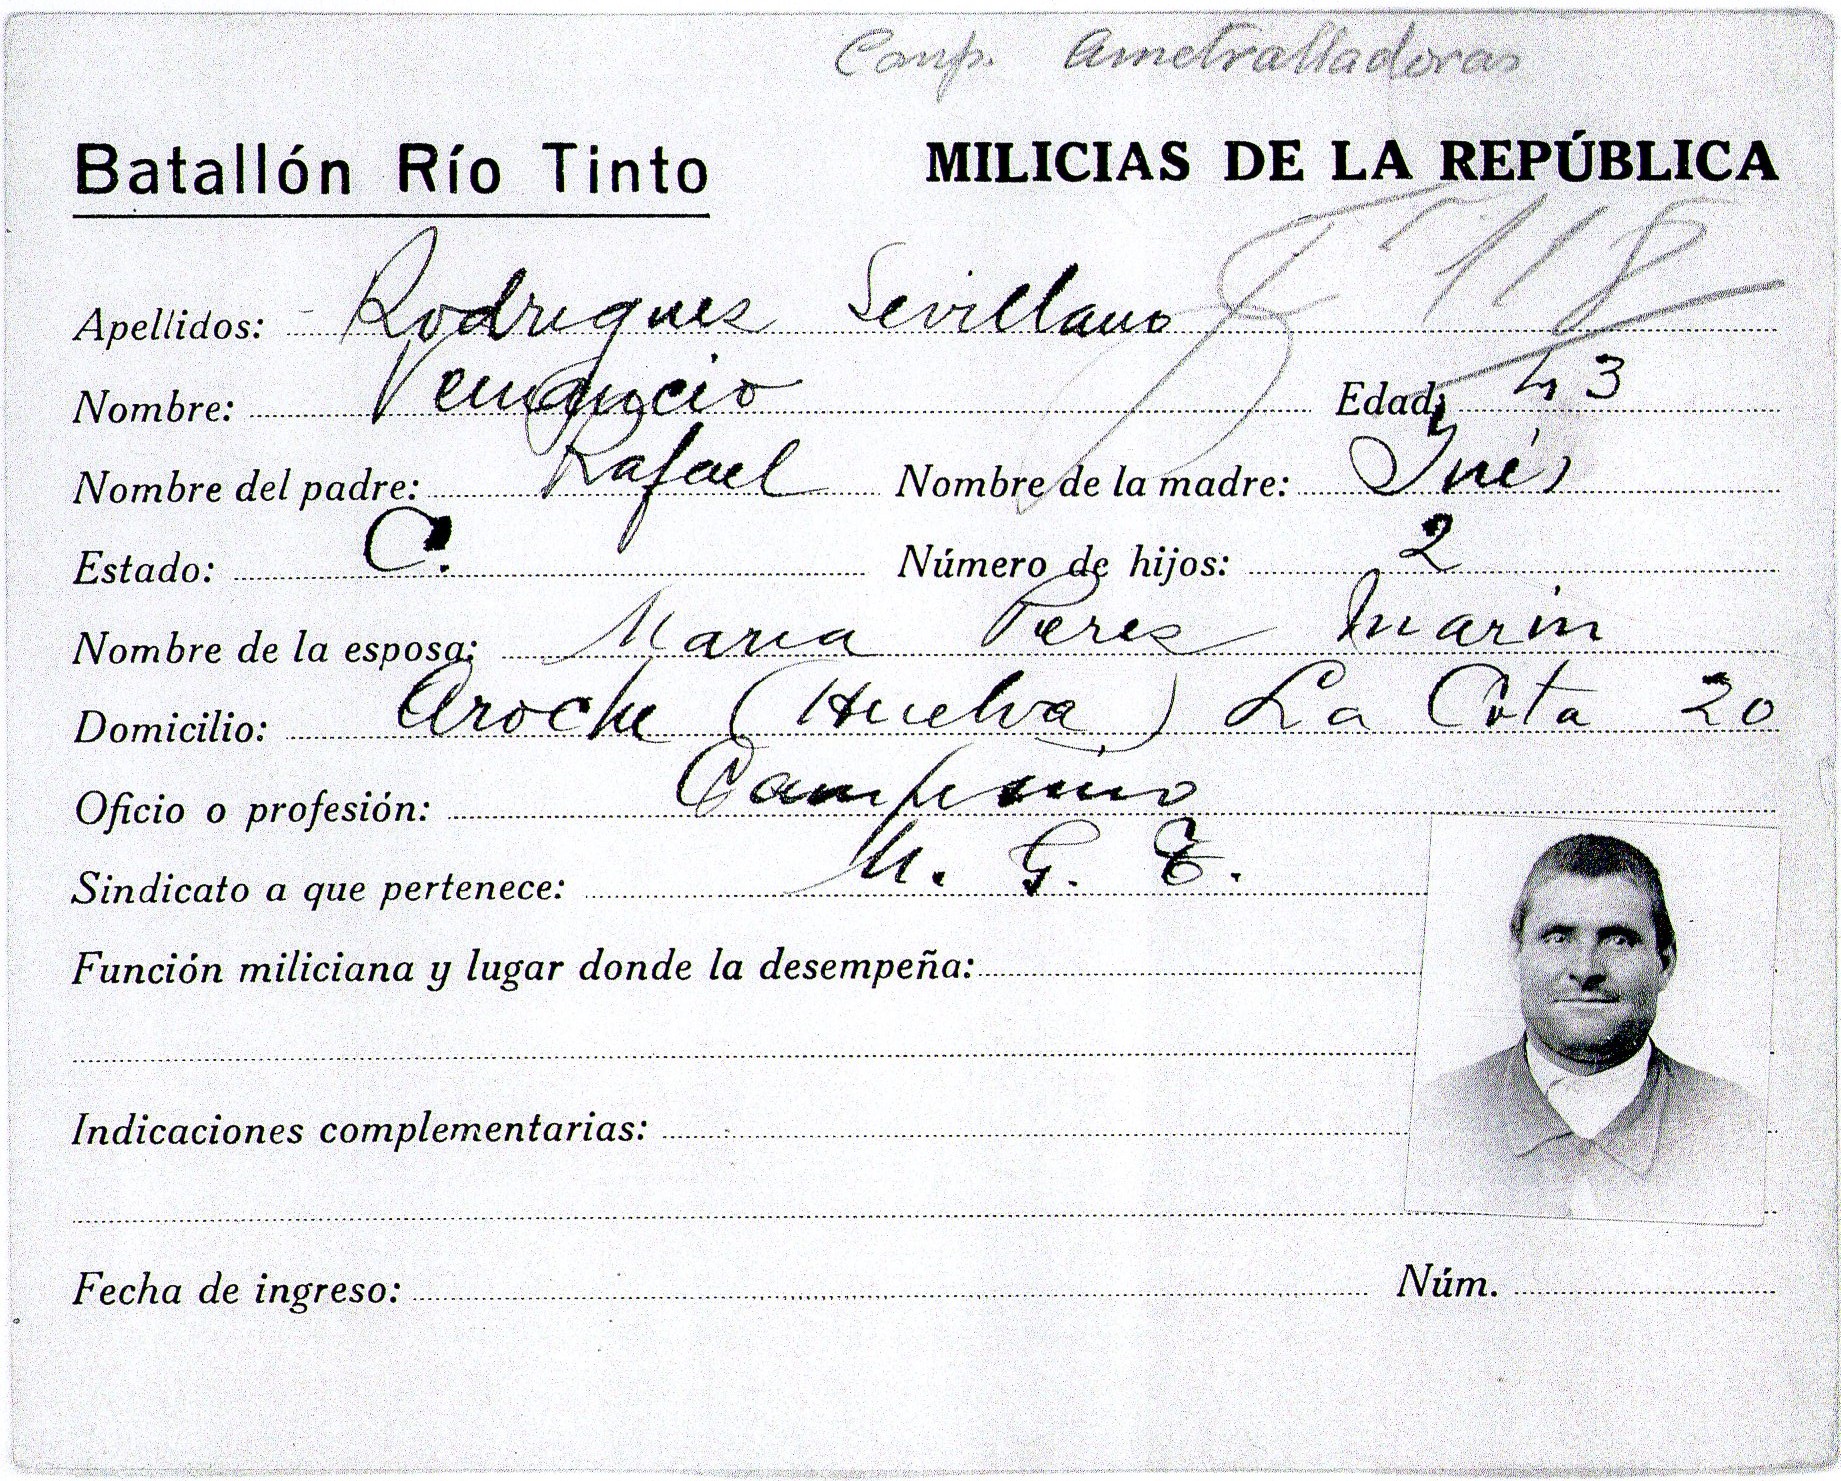 Comp. Ametralladoras
Batallón Río Tinto MILICIAS DE LA REPÚBLICA
118
Apellidos: Rodrigues Sevillano
Nombre: Venancio Edad: 43
Nombre del padre: Rafael Nombre de la madre: Inés
Estado: C. Número de hijos: 2
Nombre de la esposa: Maria Peres Marin
Domicilio: Aroche (Huelva) La Cota 20
Oficio o profesión: Campesino
Sindicato a que pertenece: U. G. T.
Función miliciana y lugar donde la desempeña:
Indicaciones complementarias:
Fecha de ingreso: Núm.